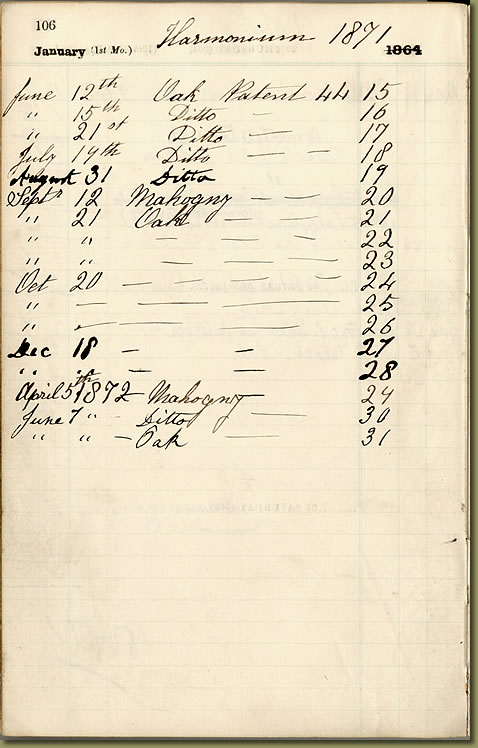 106
Harmonium 1871
January (1st Mo.) 1864
June 12th Oak Patent 44 15
" 15th Ditto — 16
" 21st Ditto — 17
July 19th Ditto — — 18
August 31 Ditto 19
Sept 12 Mahogny — — 20
" 21 Oak — — 21
" " — — — 22
" " — — — 23
Oct 20 — — — 24
" — — — — 25
" — — — — 26
Dec 18 — — 27
" " — — 28
April 5th 1872 Mahogny 29
June 7 " — Ditto — 30
" " — Oak — 31